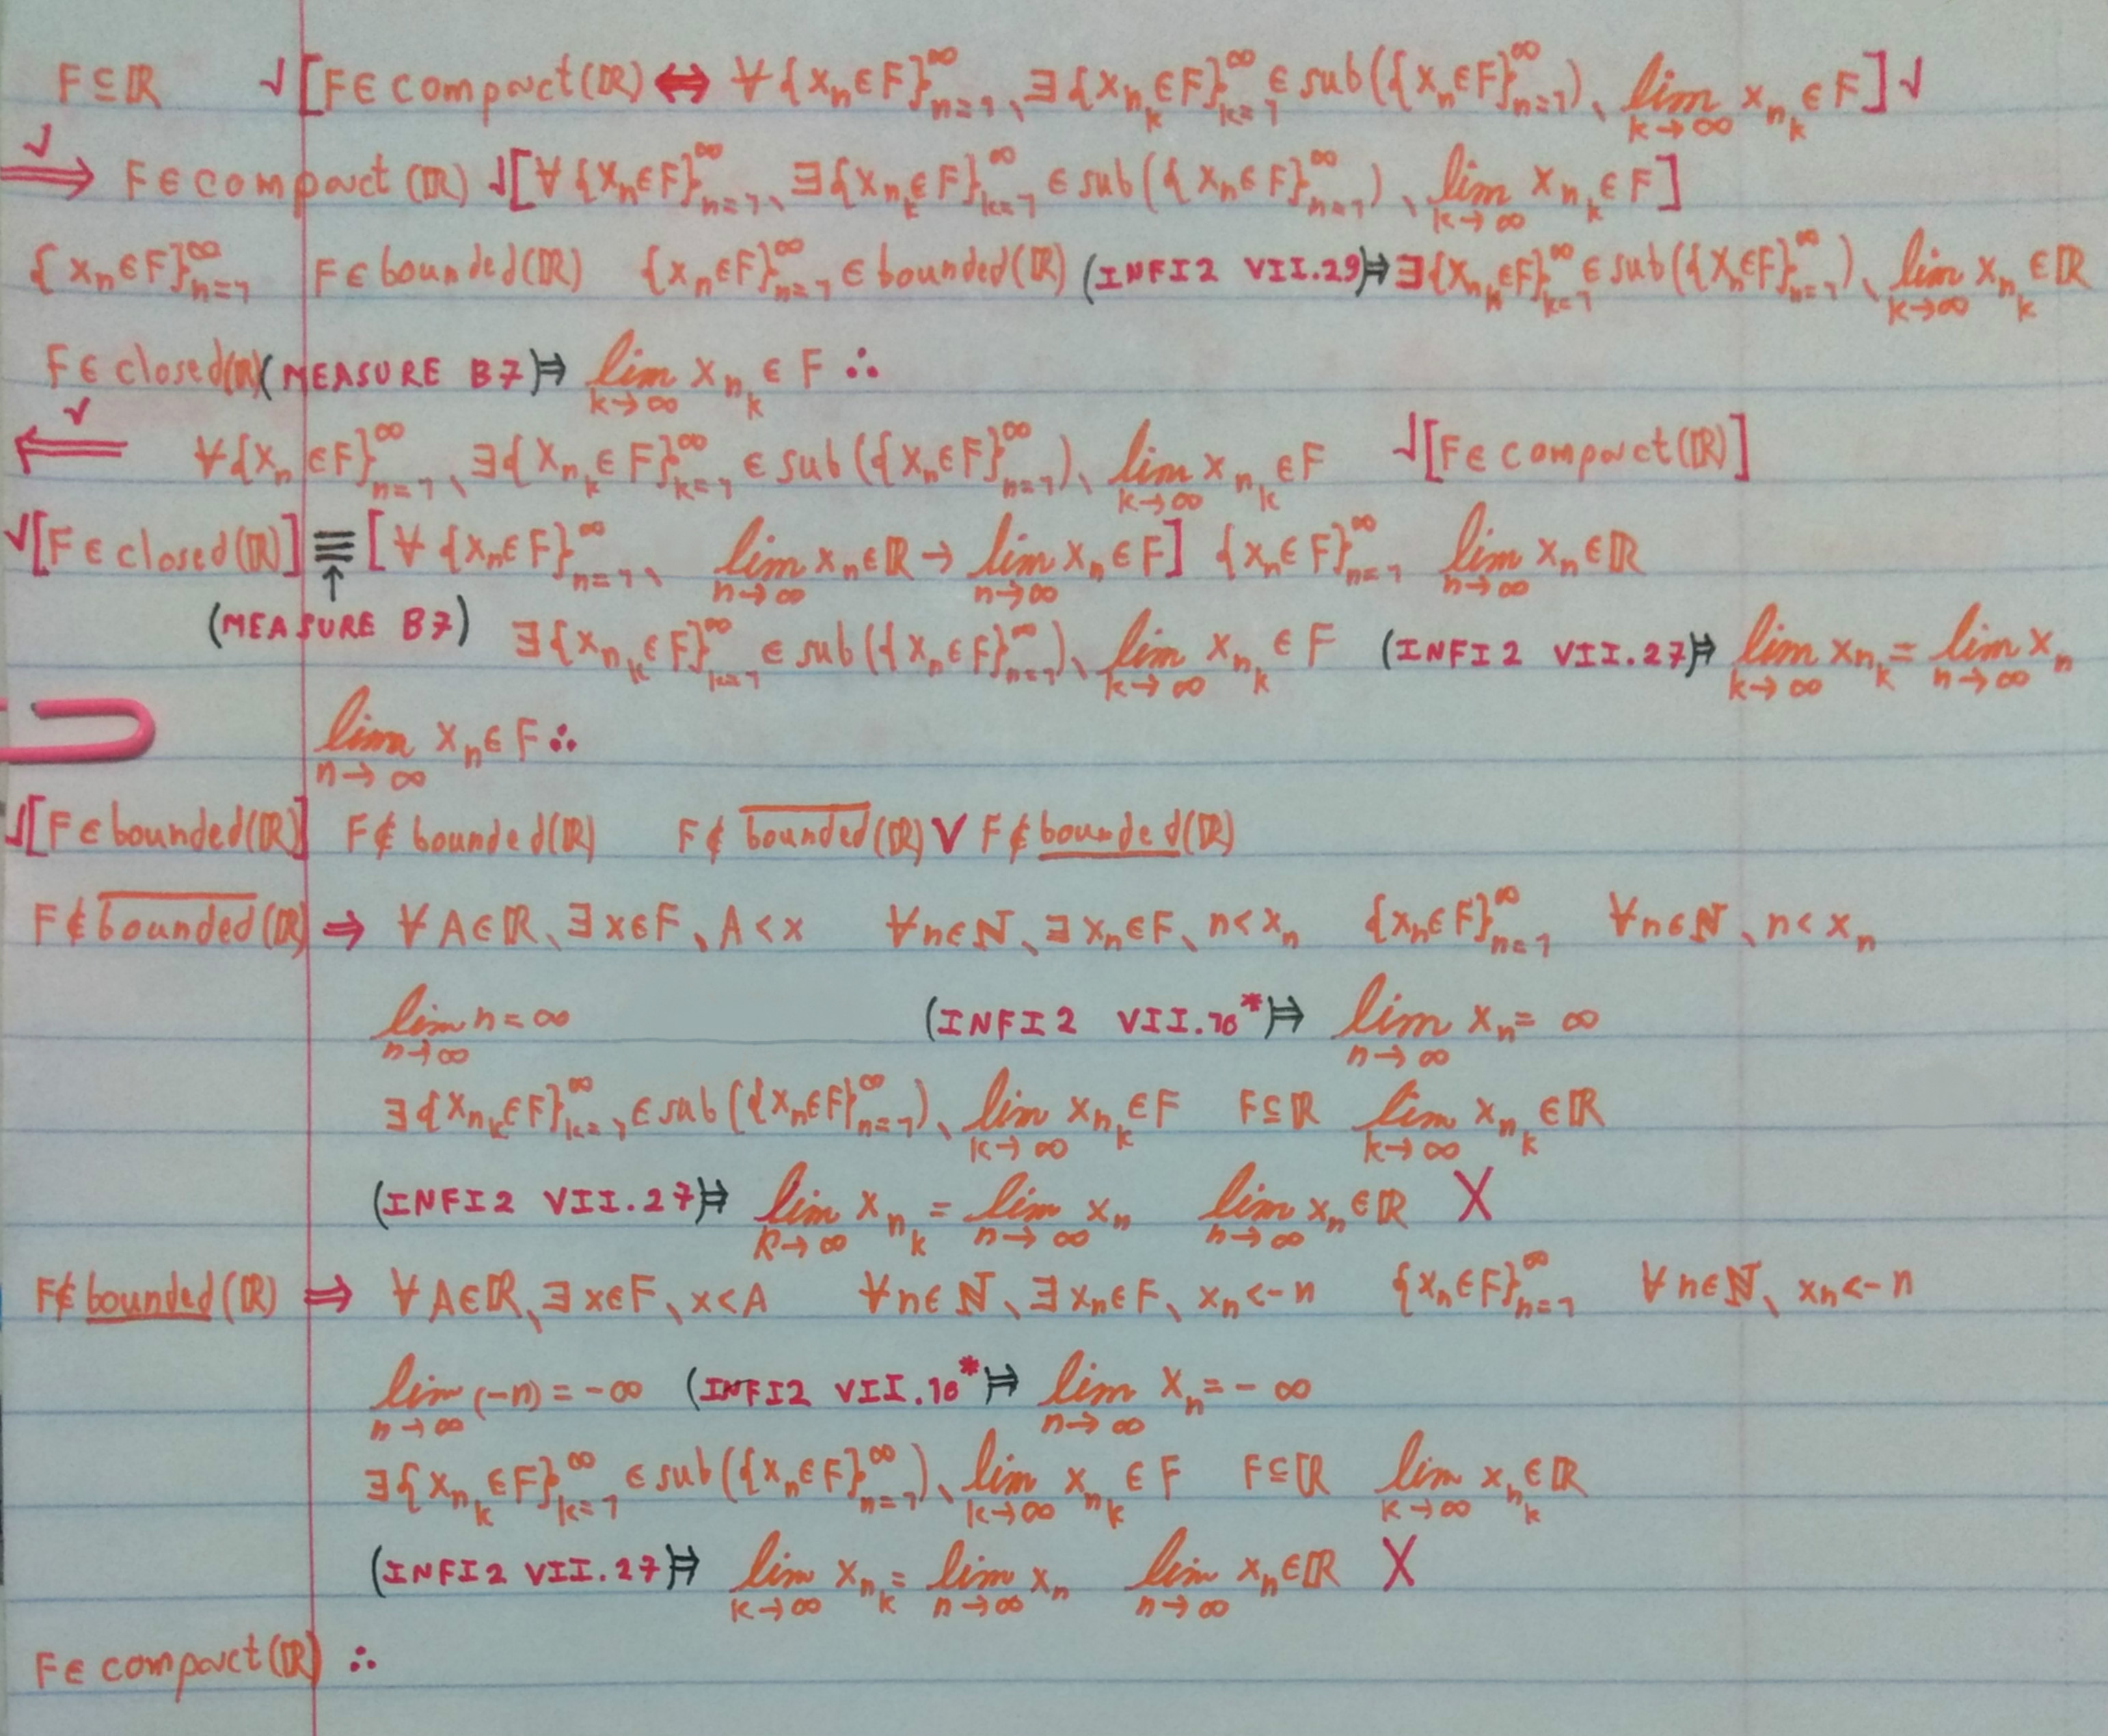 F⊆ℝ √[F∈compact(ℝ)⇔∀{xₙ∈F}ₙ₌₁^∞、∃{xₙₖ∈F}ₖ₌₁^∞∈sub({xₙ∈F}ₙ₌₁^∞)、lim_{k→∞} xₙₖ∈F]√
√⟹ F∈compact(ℝ) √[∀{xₙ∈F}ₙ₌₁^∞、∃{xₙₖ∈F}ₖ₌₁^∞∈sub({xₙ∈F}ₙ₌₁^∞)、lim_{k→∞} xₙₖ∈F]
{xₙ∈F}ₙ₌₁^∞ F∈bounded(ℝ) {xₙ∈F}ₙ₌₁^∞∈bounded(ℝ) (INFI2 VII.29)⇒∃{xₙₖ∈F}ₖ₌₁^∞∈sub({xₙ∈F}ₙ₌₁^∞)、lim_{k→∞} xₙₖ∈ℝ
F∈closed(ℝ)(MEASURE B7)⇒ lim_{k→∞} xₙₖ∈F ∴
√⟸ ∀{xₙ∈F}ₙ₌₁^∞、∃{xₙₖ∈F}ₖ₌₁^∞∈sub({xₙ∈F}ₙ₌₁^∞)、lim_{k→∞} xₙₖ∈F √[F∈compact(ℝ)]
√[F∈closed(ℝ)]≡[∀{xₙ∈F}ₙ₌₁^∞、 lim_{n→∞} xₙ∈ℝ→lim_{n→∞} xₙ∈F] {xₙ∈F}ₙ₌₁^∞ lim_{n→∞} xₙ∈ℝ
↑
(MEASURE B7) ∃{xₙₖ∈F}ₖ₌₁^∞∈sub({xₙ∈F}ₙ₌₁^∞)、lim_{k→∞} xₙₖ∈F (INFI2 VII.27)⇒ lim_{k→∞} xₙₖ=lim_{n→∞} xₙ
lim_{n→∞} xₙ∈F∴
√[F∈bounded(ℝ)] F∉bounded(ℝ) F∉b̅o̅u̅n̅d̅e̅d̅(ℝ)∨F∉b̲o̲u̲n̲d̲e̲d̲(ℝ)
F∉b̅o̅u̅n̅d̅e̅d̅(ℝ)⇒ ∀A∈ℝ、∃x∈F、A<x ∀n∈ℕ、∃xₙ∈F、n<xₙ {xₙ∈F}ₙ₌₁^∞ ∀n∈ℕ、n<xₙ
lim_{n→∞} n=∞ (INFI2 VII.16*)⇒ lim_{n→∞} xₙ=∞
∃{xₙₖ∈F}ₖ₌₁^∞∈sub({xₙ∈F}ₙ₌₁^∞)、lim_{k→∞} xₙₖ∈F F⊆ℝ lim_{k→∞} xₙₖ∈ℝ
(INFI2 VII.27)⇒ lim_{k→∞} xₙₖ=lim_{n→∞} xₙ lim_{n→∞} xₙ∈ℝ X
F∉b̲o̲u̲n̲d̲e̲d̲(ℝ) ⇒ ∀A∈ℝ、∃x∈F、x<A ∀n∈ℕ、∃xₙ∈F、xₙ<-n {xₙ∈F}ₙ₌₁^∞ ∀n∈ℕ、xₙ<-n
lim_{n→∞} (-n)=-∞ (INFI2 VII.16*)⇒ lim_{n→∞} xₙ=-∞
∃{xₙₖ∈F}ₖ₌₁^∞∈sub({xₙ∈F}ₙ₌₁^∞)、lim_{k→∞} xₙₖ∈F F⊆ℝ lim_{k→∞} xₙₖ∈ℝ
(INFI2 VII.27)⇒ lim_{k→∞} xₙₖ=lim_{n→∞} xₙ lim_{n→∞} xₙ∈ℝ X
F∈compact(ℝ) ∴